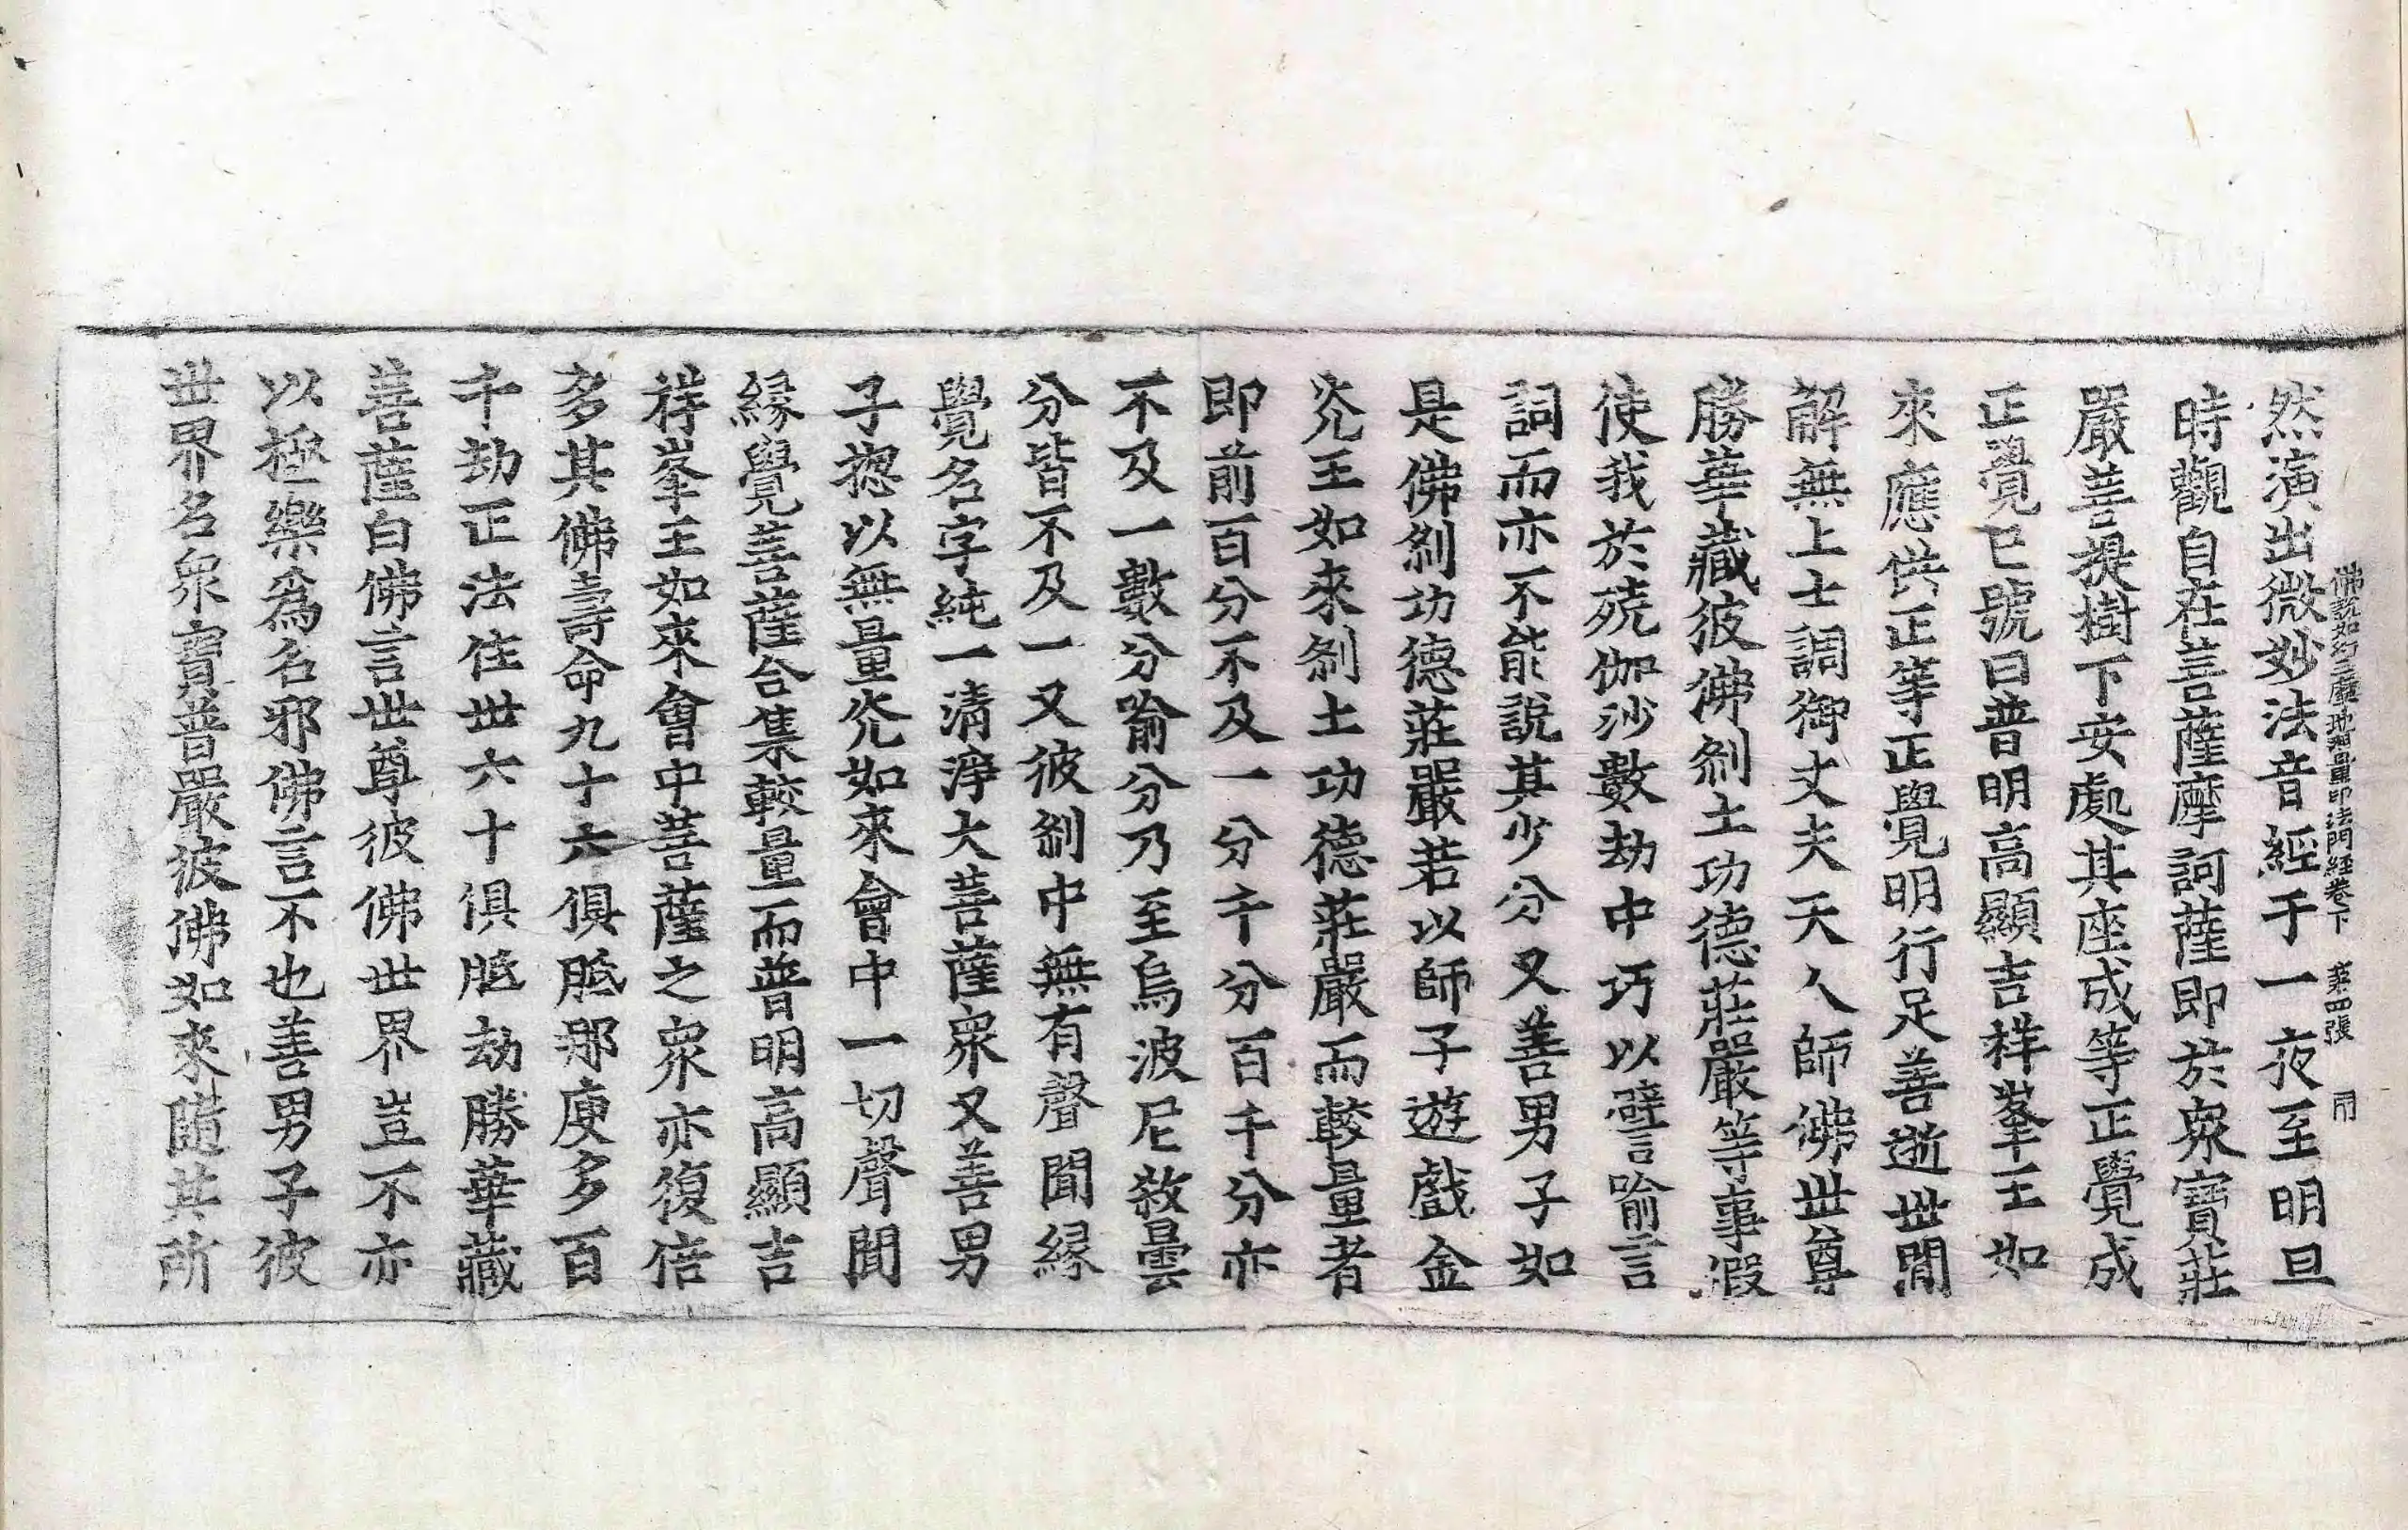 佛說如幻三摩地無量印法門經卷下 第四張 同
然演出微妙法音經于一夜至明旦
時觀自在菩薩摩訶薩即於衆寶莊
嚴菩提樹下安處其座成等正覺成
正覺已號曰普明高顯吉祥峯王如
來應供正等正覺明行足善逝世閒
解無上士調御丈夫天人師佛世尊
勝華藏彼佛刹土功德莊嚴等事假
使我於殑伽沙數劫中巧以譬喻言
詞而亦不能說其少分又善男子如
是佛刹功德莊嚴若以師子遊戲金
光王如來刹土功德莊嚴而較量者
即前百分不及一分千分百千分亦
不及一數分喻分乃至烏波尼殺曇
分皆不及一又彼刹中無有聲聞緣
覺名字純一清淨大菩薩衆又善男
子摠以無量光如來會中一切聲聞
緣覺菩薩合集較量而普明高顯吉
祥峯王如來會中菩薩之衆亦復倍
多其佛壽命九十六俱胝那庾多百
千劫正法住世六十俱胝劫勝華藏
菩薩白佛言世尊彼佛世界豈不亦
以極樂爲名邪佛言不也善男子彼
世界名衆寶普嚴彼佛如來隨其所